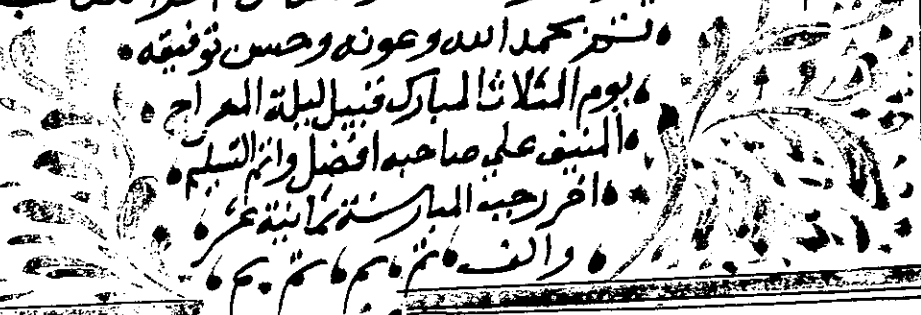 بحمد الله وعونه وحسن توفيقه
يوم الثلاثا المبارك قبيل ليلة المعراج
المنيف علي صاحبه افضل واتم التسليم
اخر رجب المبارك سنة ثمانية عشر
والف تم تم تم تم